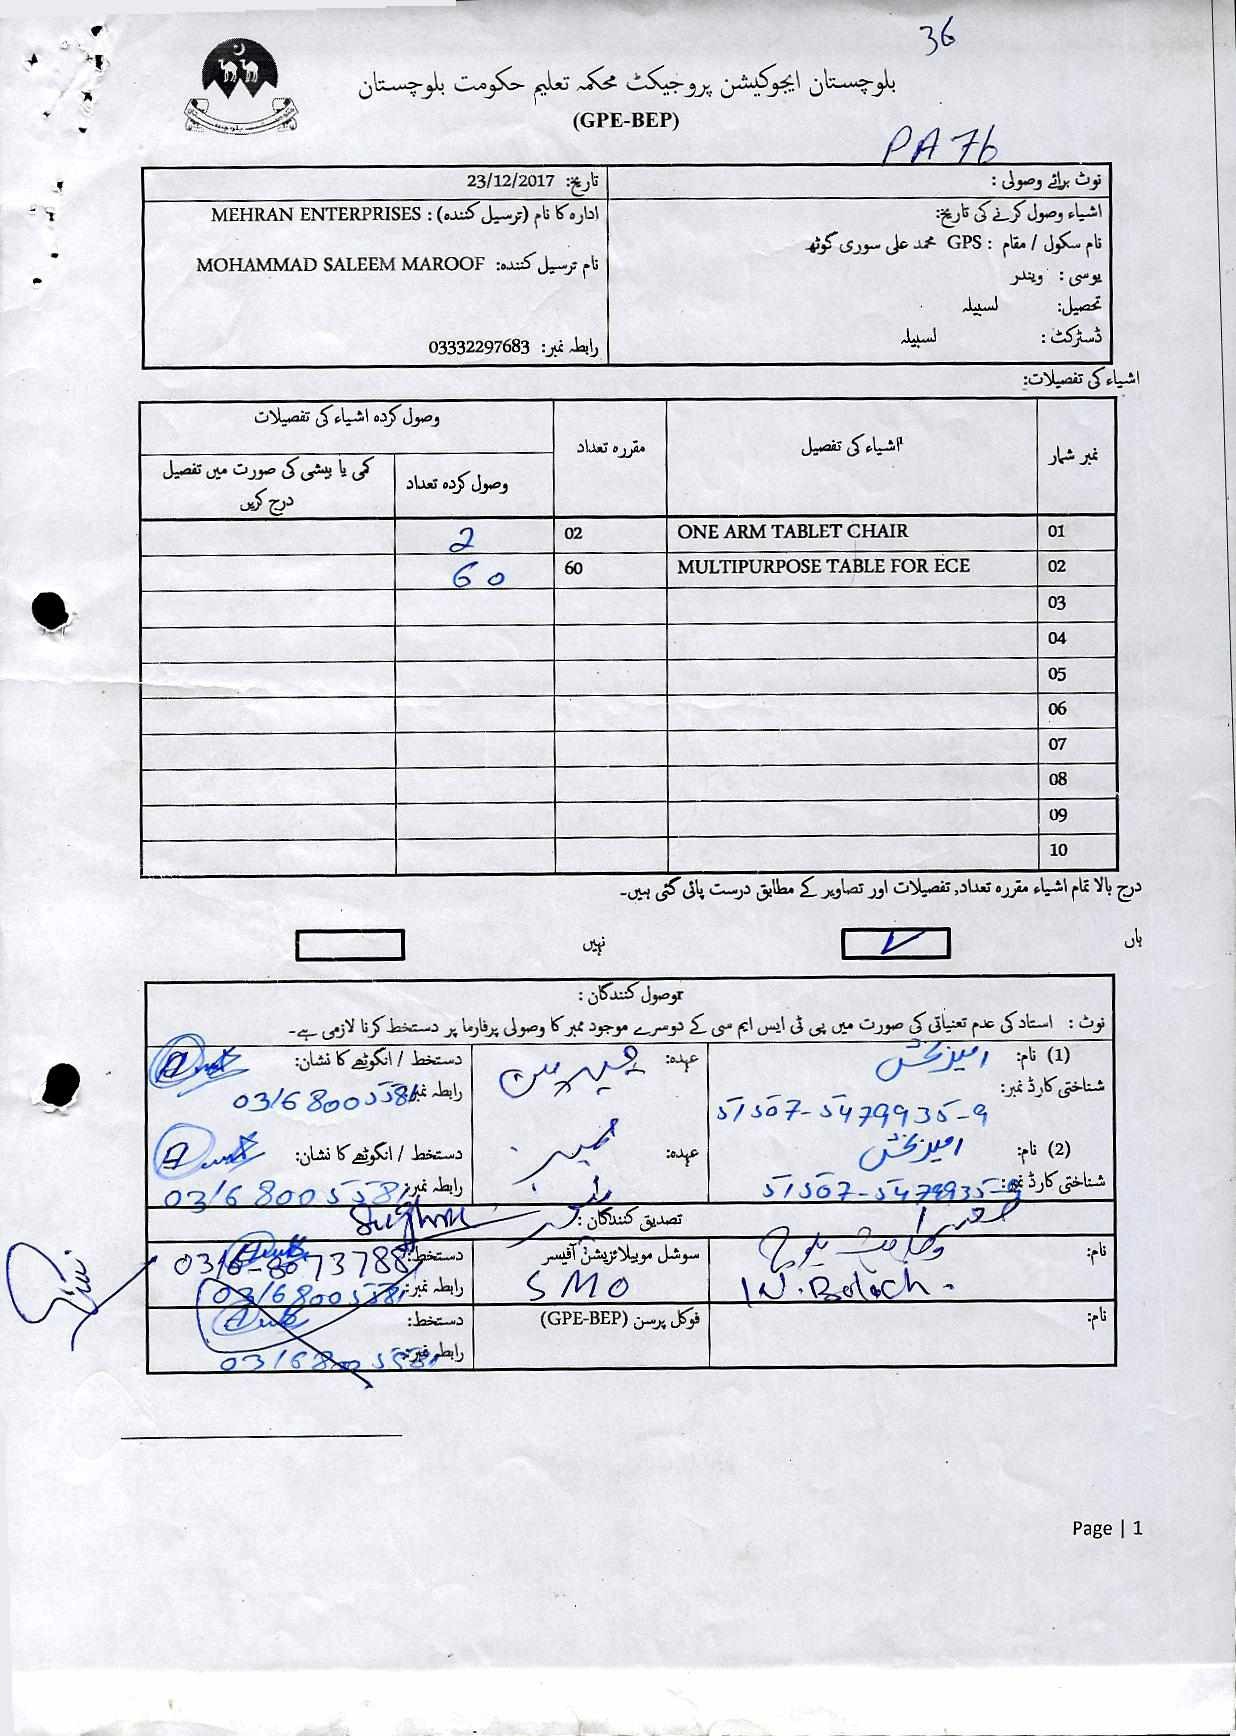 36
بلوچستان ایجوکیشن پروجیکٹ محکمہ تعلیم حکومت بلوچستان
(GPE-BEP)
PA 76
نوٹ برائے وصولی :
تاریخ: 23/12/2017
اشیاء وصول کرنے کی تاریخ:
نام سکول / مقام : GPS محمد علی سوری گوٹھ
یوسی : ویندر
تحصیل: لسبیلہ
ڈسٹرکٹ : لسبیلہ
ادارہ کا نام (ترسیل کنندہ) : MEHRAN ENTERPRISES
نام ترسیل کنندہ: MOHAMMAD SALEEM MAROOF
رابطہ نمبر: 03332297683
اشیاء کی تفصیلات:
نمبر شمار اشیاء کی تفصیل مقررہ تعداد وصول کردہ اشیاء کی تفصیلات
وصول کردہ تعداد کمی یا بیشی کی صورت میں تفصیل درج کریں
01 ONE ARM TABLET CHAIR 02 2
02 MULTIPURPOSE TABLE FOR ECE 60 60
03
04
05
06
07
08
09
10
درج بالا تمام اشیاء مقررہ تعداد, تفصیلات اور تصاویر کے مطابق درست پائی گئی ہیں۔
ہاں نہیں
وصول کنندگان :
نوٹ : استاد کی عدم تعنیاتی کی صورت میں پی ٹی ایس ایم سی کے دوسرے موجود ممبر کا وصولی پرفارما پر دستخط کرنا لازمی ہے۔
(1) نام: امیر بخش عہدہ: چیرمین دستخط / انگوٹھے کا نشان:
شناختی کارڈ نمبر: 51507-5479935-9 رابطہ نمبر: 03168005581
(2) نام: امیر بخش عہدہ: دستخط / انگوٹھے کا نشان:
شناختی کارڈ نمبر: 51507-5479935-9 رابطہ نمبر: 03168005581
تصدیق کنندگان :
نام: W. Baloch. سوشل موبیلائزیشن آفیسر SMO دستخط:
رابطہ نمبر: 03168005581
نام: فوکل پرسن (GPE-BEP) دستخط:
رابطہ نمبر: 03168005581
Page | 1